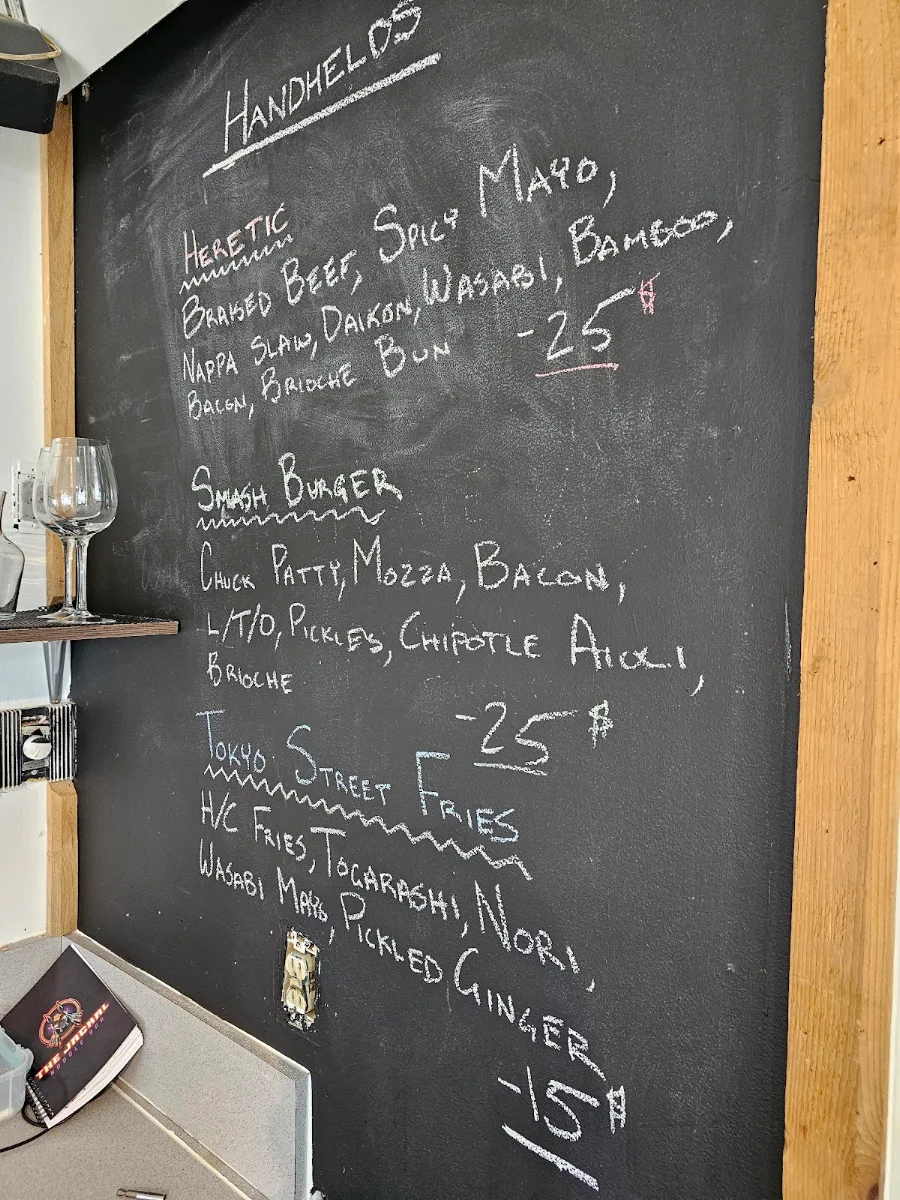 HANDHELDS
HERETIC
BRAISED BEEF, SPICY MAYO,
NAPPA SLAW, DAIKON, WASABI, BAMBOO,
BACON, BRIOCHE BUN -25$
SMASH BURGER
CHUCK PATTY, MOZZA, BACON,
L/T/O, PICKLES, CHIPOTLE AIOLI,
BRIOCHE
-25$
TOKYO STREET FRIES
H/C FRIES, TOGARASHI, NORI,
WASABI MAYO, PICKLED GINGER
-15$
THE JACKAL